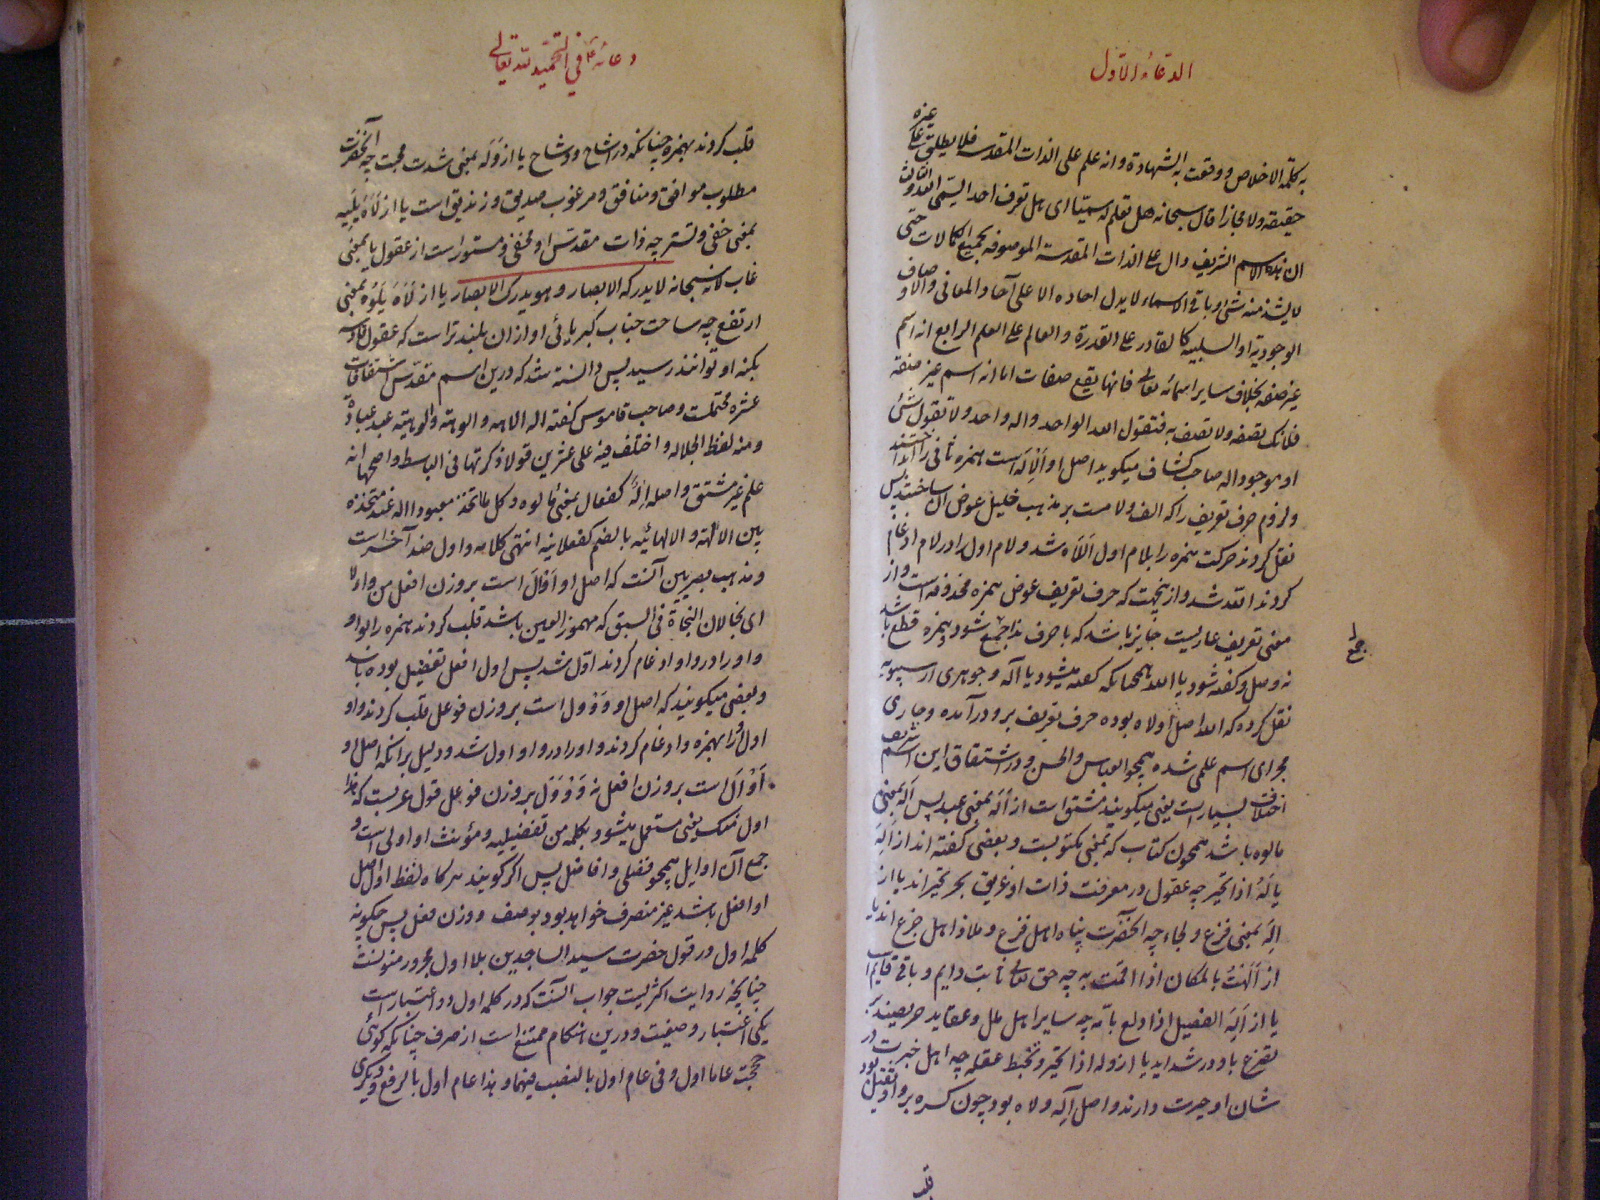 الدعاء الاول
به كلمة الاخلاص ووقعت به الشهادة وانه علم على الذات المقدسه فلا يطلق على غيره
حقيقة ولا مجازا قال سبحانه هل تعلم له سميا اى هل تعرف احدا يسمى الله
ان هذا الاسم الشريف دال على الذات المقدسة الموصوفه بجميع الكمالات حتى
لا يشذ منه شئ وباقى الاسماء لا يدل احاده الا على آحاد المعانى والاوصاف
الوجودية او السلبيه كالقادر على القدرة والعالم على العلم الرابع انه اسم
غير صفه بخلاف ساير اسمائه تعالى فانها يقع صفات اما انه اسم غير صفة
فلانك تصفه ولا تصف به فتقول اله واحد ولا تقول شئ
اله صاحب كشاف ميكويد اصل او الاله است همزه ثانى را
ولزوم حرف تعريف را كه الف ولامست بر مذهب خليل عوض آن ساختند پس
نقل كردند حركت همزه را بلام اول اللاه شد ولام اول را در لام ادغام
كردند الله شد وازينجهت كه حرف تعريف عوض همزه محذوفه است واز
معنى تعريف عاريست جايز باشد كه با حرف ندا جمع شود وهمزه قطع باشد
نه وصل وكفته شود يا الله همچنانكه كفته ميشود يا اله وجوهرى از سيبويه
نقل كرده كه الله اصل او لاه بوده حرف تعريف برو در آمده وجارى
مجراى اسم علمى شده همچو العباس والحسن ودر اشتقاق اين اسم شريف
اختلاف بسيار است بعضى ميكويند مشتق است از اله بمعنى عبد پس اله بمعنى
مالوه باشد همچون كتاب كه بمعنى مكتوبست وبعضى كفته اند از اله
ياله اذا تحير چه عقول در معرفت ذات او غريق بحر تحيراند يا از
اله بمعنى فزع ولجاء چه آنحضرت پناه اهل فزع وملاذ اهل جزع اند يا
از الهت بالمكان اذا اقمت به چه حق تعالى ثابت دايم وباقى
يا از اله الفصيل اذا ولع بامه چه ساير اهل ملل وعقايد حريصند
تضرع باو در شدايد يا از وله اذا تحير وتخبط عقله چه اهل خبرت در
شان او حيرت دارند واصل اله ولاه بود چون كسره بر واو ثقيل بود
قلب
جمع
دعائه ع فى التحميد لله تعالى
قلب كردند بهمزه چنانكه در اشاح ووشاح يا از وله بمعنى شدت محبت چه آنحضرت
مطلوب موافق ومنافق ومرغوب صديق وزنديق است يا از لاه يليه
بمعنى خفى وتستر چه ذات مقدس او مخفى ومستور است از عقول يا بمعنى
غاب لانه سبحانه لا يدركه الابصار وهو يدرك الابصار يا از لاه يلوه بمعنى
ارتفع چه ساحت جناب كبريائى او از ان بلند تر است كه عقول
بكنه او توانند رسيد پس دانسته شد كه درين اسم مقدس اشتقاقات
عشره محتملست وصاحب قاموس كفته اله الاهه والوهة والوهية عبد عبادة
ومنه لفظ الجلاله واختلف فيه على عشرين قولا ذكرتها فى الباسط واصحها انه
علم غير مشتق واصله اله كفعال بمعنى مالوه وكل ما اتخذ معبودا اله عند متخذه
بين الالهة والالهانيه بالضم كفعلانيه انتهى كلامه واول ضد آخر است
ومذهب بصريين آنست كه اصل او اوأل است بروزن افعل من وال
اى نجا لان النجاة فى السبق كه مهموز العين باشد قلب كردند همزه را بواو
واو را در واو ادغام كردند اول شد پس اول افعل تفضيل بوده باشد
وبعضى ميكويند كه اصل او وول است بروزن فوعل قلب كردند واو
اول را بهمزه وادغام كردند واو را در واو اول شد ودليل بر آنكه اصل او
اوأل است بروزن افعل نه ووول بروزن فوعل قول عربست كه هذا
اول منك يعنى مستعمل ميشود بكلمه من تفضيليه ومؤنث او اولى است و
جمع آن اوايل همچو فضلى وافاضل پس اكر كويند هر كاه لفظ اول اصل
او افعل باشد غير منصرف خواهد بود بوصف ووزن فعل پس چكونه
كلمه اول در قول حضرت سيد الساجدين بلا اول مجرور منونست
چنانچه روايت اكثريست جواب آنست كه در كلمه اول دو اعتبار است
يكى اعتبار وصفيت ودرين هنكام ممتنع است از صرف چنانكه كوئى
حججت عاما اول وفى عام اول بالنصب فيهما وهذا عام اول بالرفع وديكرى